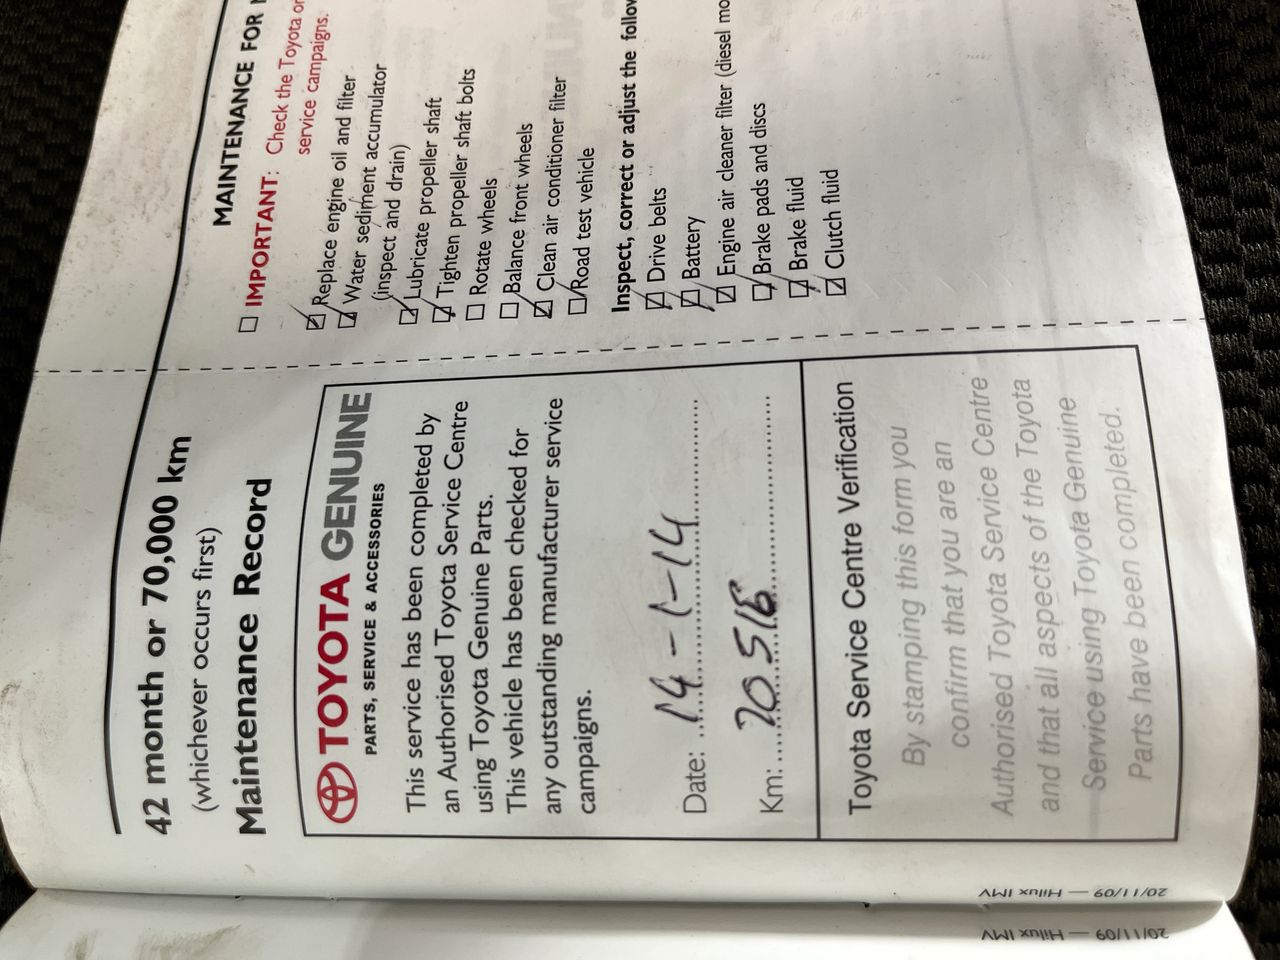 42 month or 70,000 km
(whichever occurs first)
Maintenance Record
TOYOTA GENUINE
PARTS, SERVICE & ACCESSORIES
This service has been completed by
an Authorised Toyota Service Centre
using Toyota Genuine Parts.
This vehicle has been checked for
any outstanding manufacturer service
campaigns.
Date: 14-1-14
Km: 70516
Toyota Service Centre Verification
By stamping this form you
confirm that you are an
Authorised Toyota Service Centre
and that all aspects of the Toyota
Service using Toyota Genuine
Parts have been completed.
MAINTENANCE FOR
IMPORTANT: Check the Toyota
service campaigns.
Replace engine oil and filter
Water sediment accumulator
(inspect and drain)
Lubricate propeller shaft
Tighten propeller shaft bolts
Rotate wheels
Balance front wheels
Clean air conditioner filter
Road test vehicle
Inspect, correct or adjust the
Drive belts
Battery
Engine air cleaner filter (diesel
Brake pads and discs
Brake fluid
Clutch fluid
20/11/09 — Hilux IMV
20/11/09 — Hilux IMV